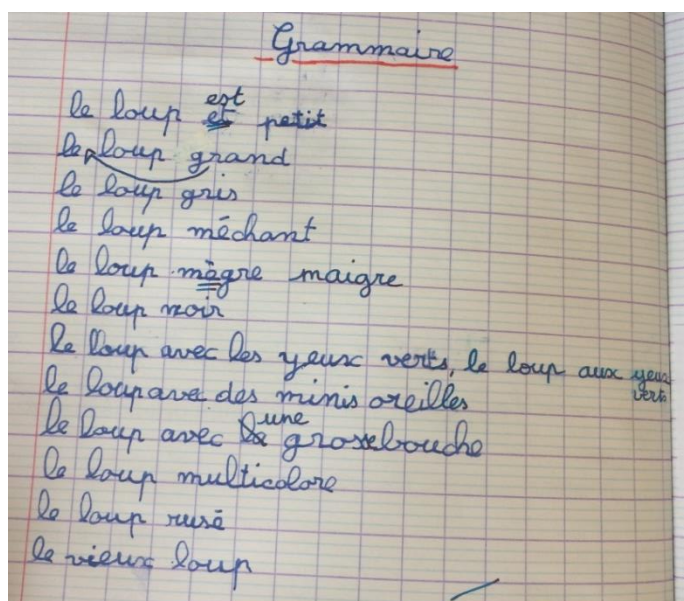 Grammaire
le loup et est petit
le loup grand
le loup gris
le loup méchant
le loup mègre maigre
le loup noir
le loup avec les yeux verts, le loup aux yeux verts
le loup ave des minis oreilles
le loup avec la une grosse bouche
le loup multicolore
le loup rusé
le vieux loup